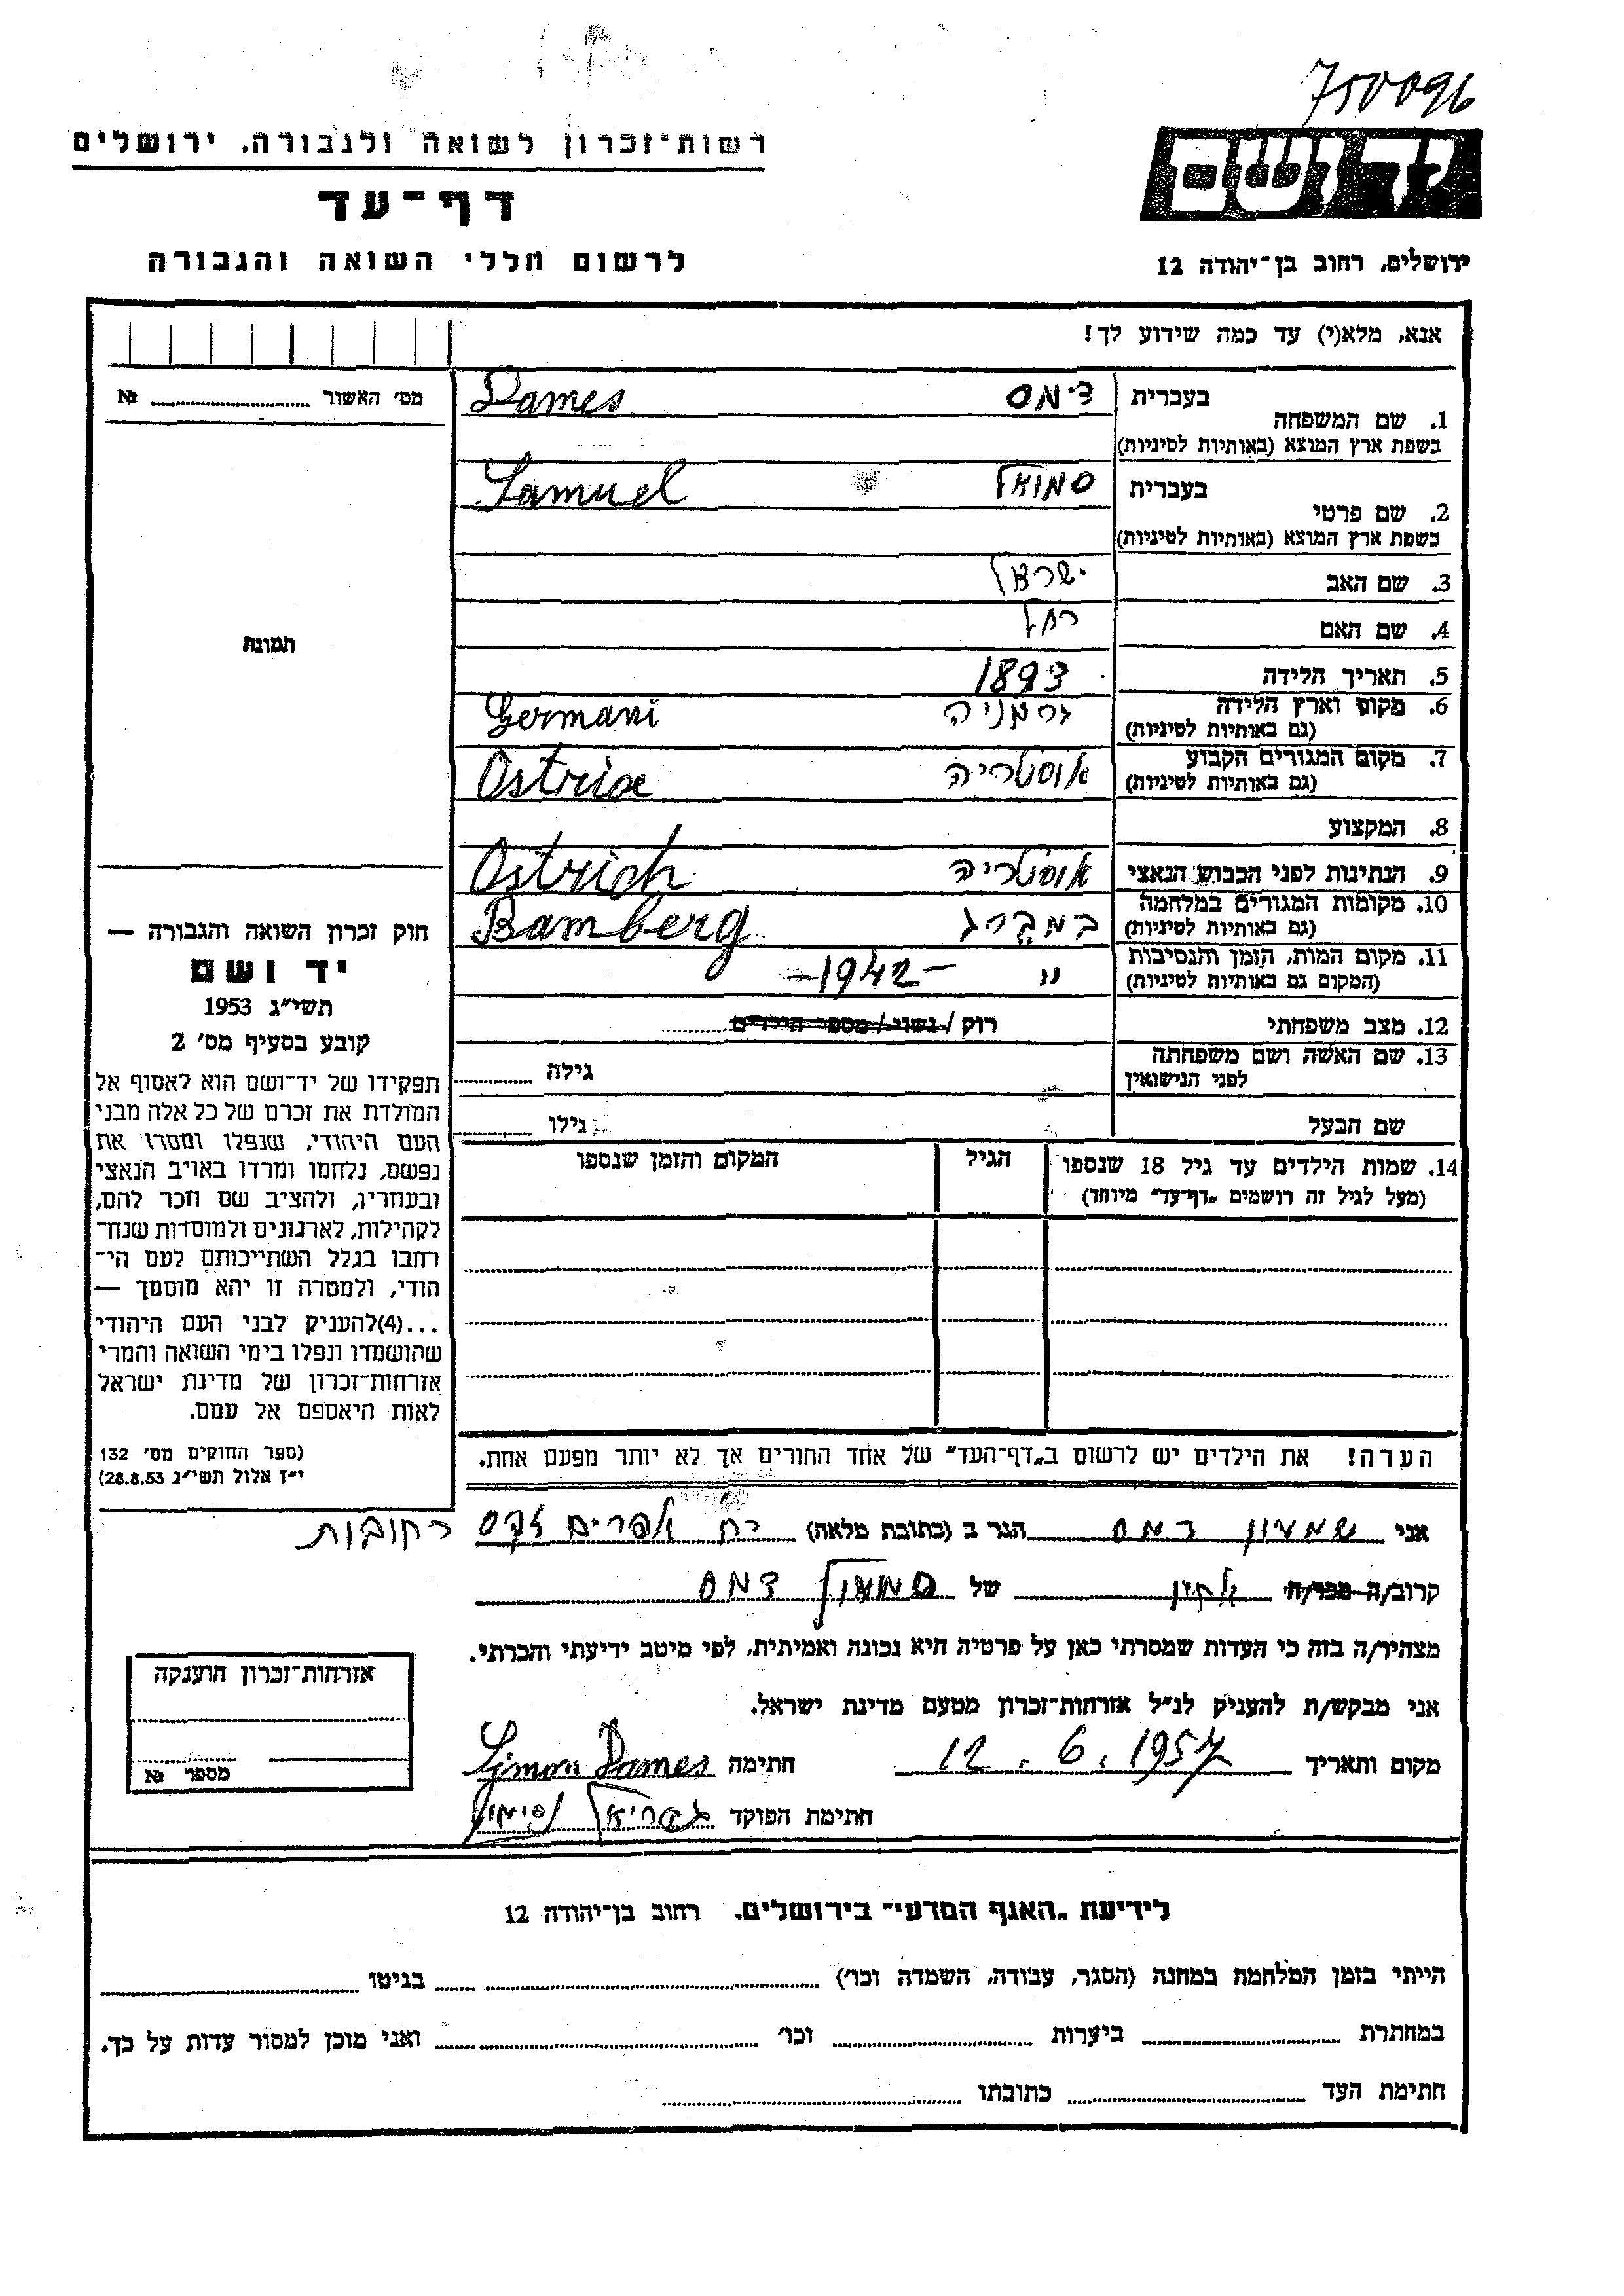 750096
רשות־זכרון לשואה ולגבורה. ירושלים
יד ושם
דף־עד
לרשום חללי השואה והגבורה
ירושלים, רחוב בן־יהודה 12
אנא, מלא(י) עד כמה שידוע לך!
מס׳ האשור № 
1. שם המשפחה בעברית דימס Dames
בשפת ארץ המוצא (באותיות לטיניות)
2. שם פרטי בעברית סמואל Samuel
בשפת ארץ המוצא (באותיות לטיניות)
3. שם האב ישראל
4. שם האם רחל
5. תאריך הלידה 1893
6. מקום וארץ הלידה גרמניה Germani
(גם באותיות לטיניות)
7. מקום המגורים הקבוע אוסטריה Ostria
(גם באותיות לטיניות)
8. המקצוע
9. הנתינות לפני הכבוש הנאצי אוסטריה Ostrich
10. מקומות המגורים במלחמה במברג Bamberg
(גם באותיות לטיניות)
11. מקום המות, הזמן והנסיבות " –1942–
(המקום גם באותיות לטיניות)
12. מצב משפחתי רוק / נשוי / מספר הילדים
13. שם האשה ושם משפחתה גילה
לפני הנישואין
שם הבעל גילו
תמונה
חוק זכרון השואה והגבורה —
יד ושם
תשי״ג 1953
קובע בסעיף מס׳ 2
תפקידו של יד־ושם הוא לאסוף אל
המולדת את זכרם של כל אלה מבני
העם היהודי, שנפלו ומסרו את
נפשם, נלחמו ומרדו באויב הנאצי
ובעוזריו, ולהציב שם וזכר להם,
לקהילות, לארגונים ולמוסדות שנח־
רבו בגלל השתייכותם לעם הי־
הודי, ולמטרה זו יהא מוסמך —
...(4)להעניק לבני העם היהודי
שהושמדו ונפלו בימי השואה והמרי
אזרחות־זכרון של מדינת ישראל
לאות היאספם אל עמם.
(ספר החוקים מס׳ 132
י״ז אלול תשי״ג 28.8.53)
14. שמות הילדים עד גיל 18 שנספו הגיל המקום והזמן שנספו
(מעל לגיל זה רושמים „דף־עד״ מיוחד)
הערה! את הילדים יש לרשום ב„דף־העד״ של אחד ההורים אך לא יותר מפעם אחת.
אני שמעון דמס הגר ב (כתובת מלאה) רח אפרים רחובות
קרוב/ה מכר/ה של דמס
מצהיר/ה בזה כי העדות שמסרתי כאן על פרטיה היא נכונה ואמיתית, לפי מיטב ידיעתי והכרתי.
אני מבקש/ת להעניק לנ״ל אזרחות־זכרון מטעם מדינת ישראל.
מקום ותאריך 12.6.1957 חתימה Simon Dames
חתימת הפוקד גבריאל
אזרחות־זכרון הוענקה
מספר №
לידיעת „האגף המדעי״ בירושלים. רחוב בן־יהודה 12
הייתי בזמן המלחמה במחנה (הסגר, עבודה, השמדה וכו׳) בגיטו
במחתרת ביערות וכו׳ ואני מוכן למסור עדות על כך.
חתימת העד כתובתו